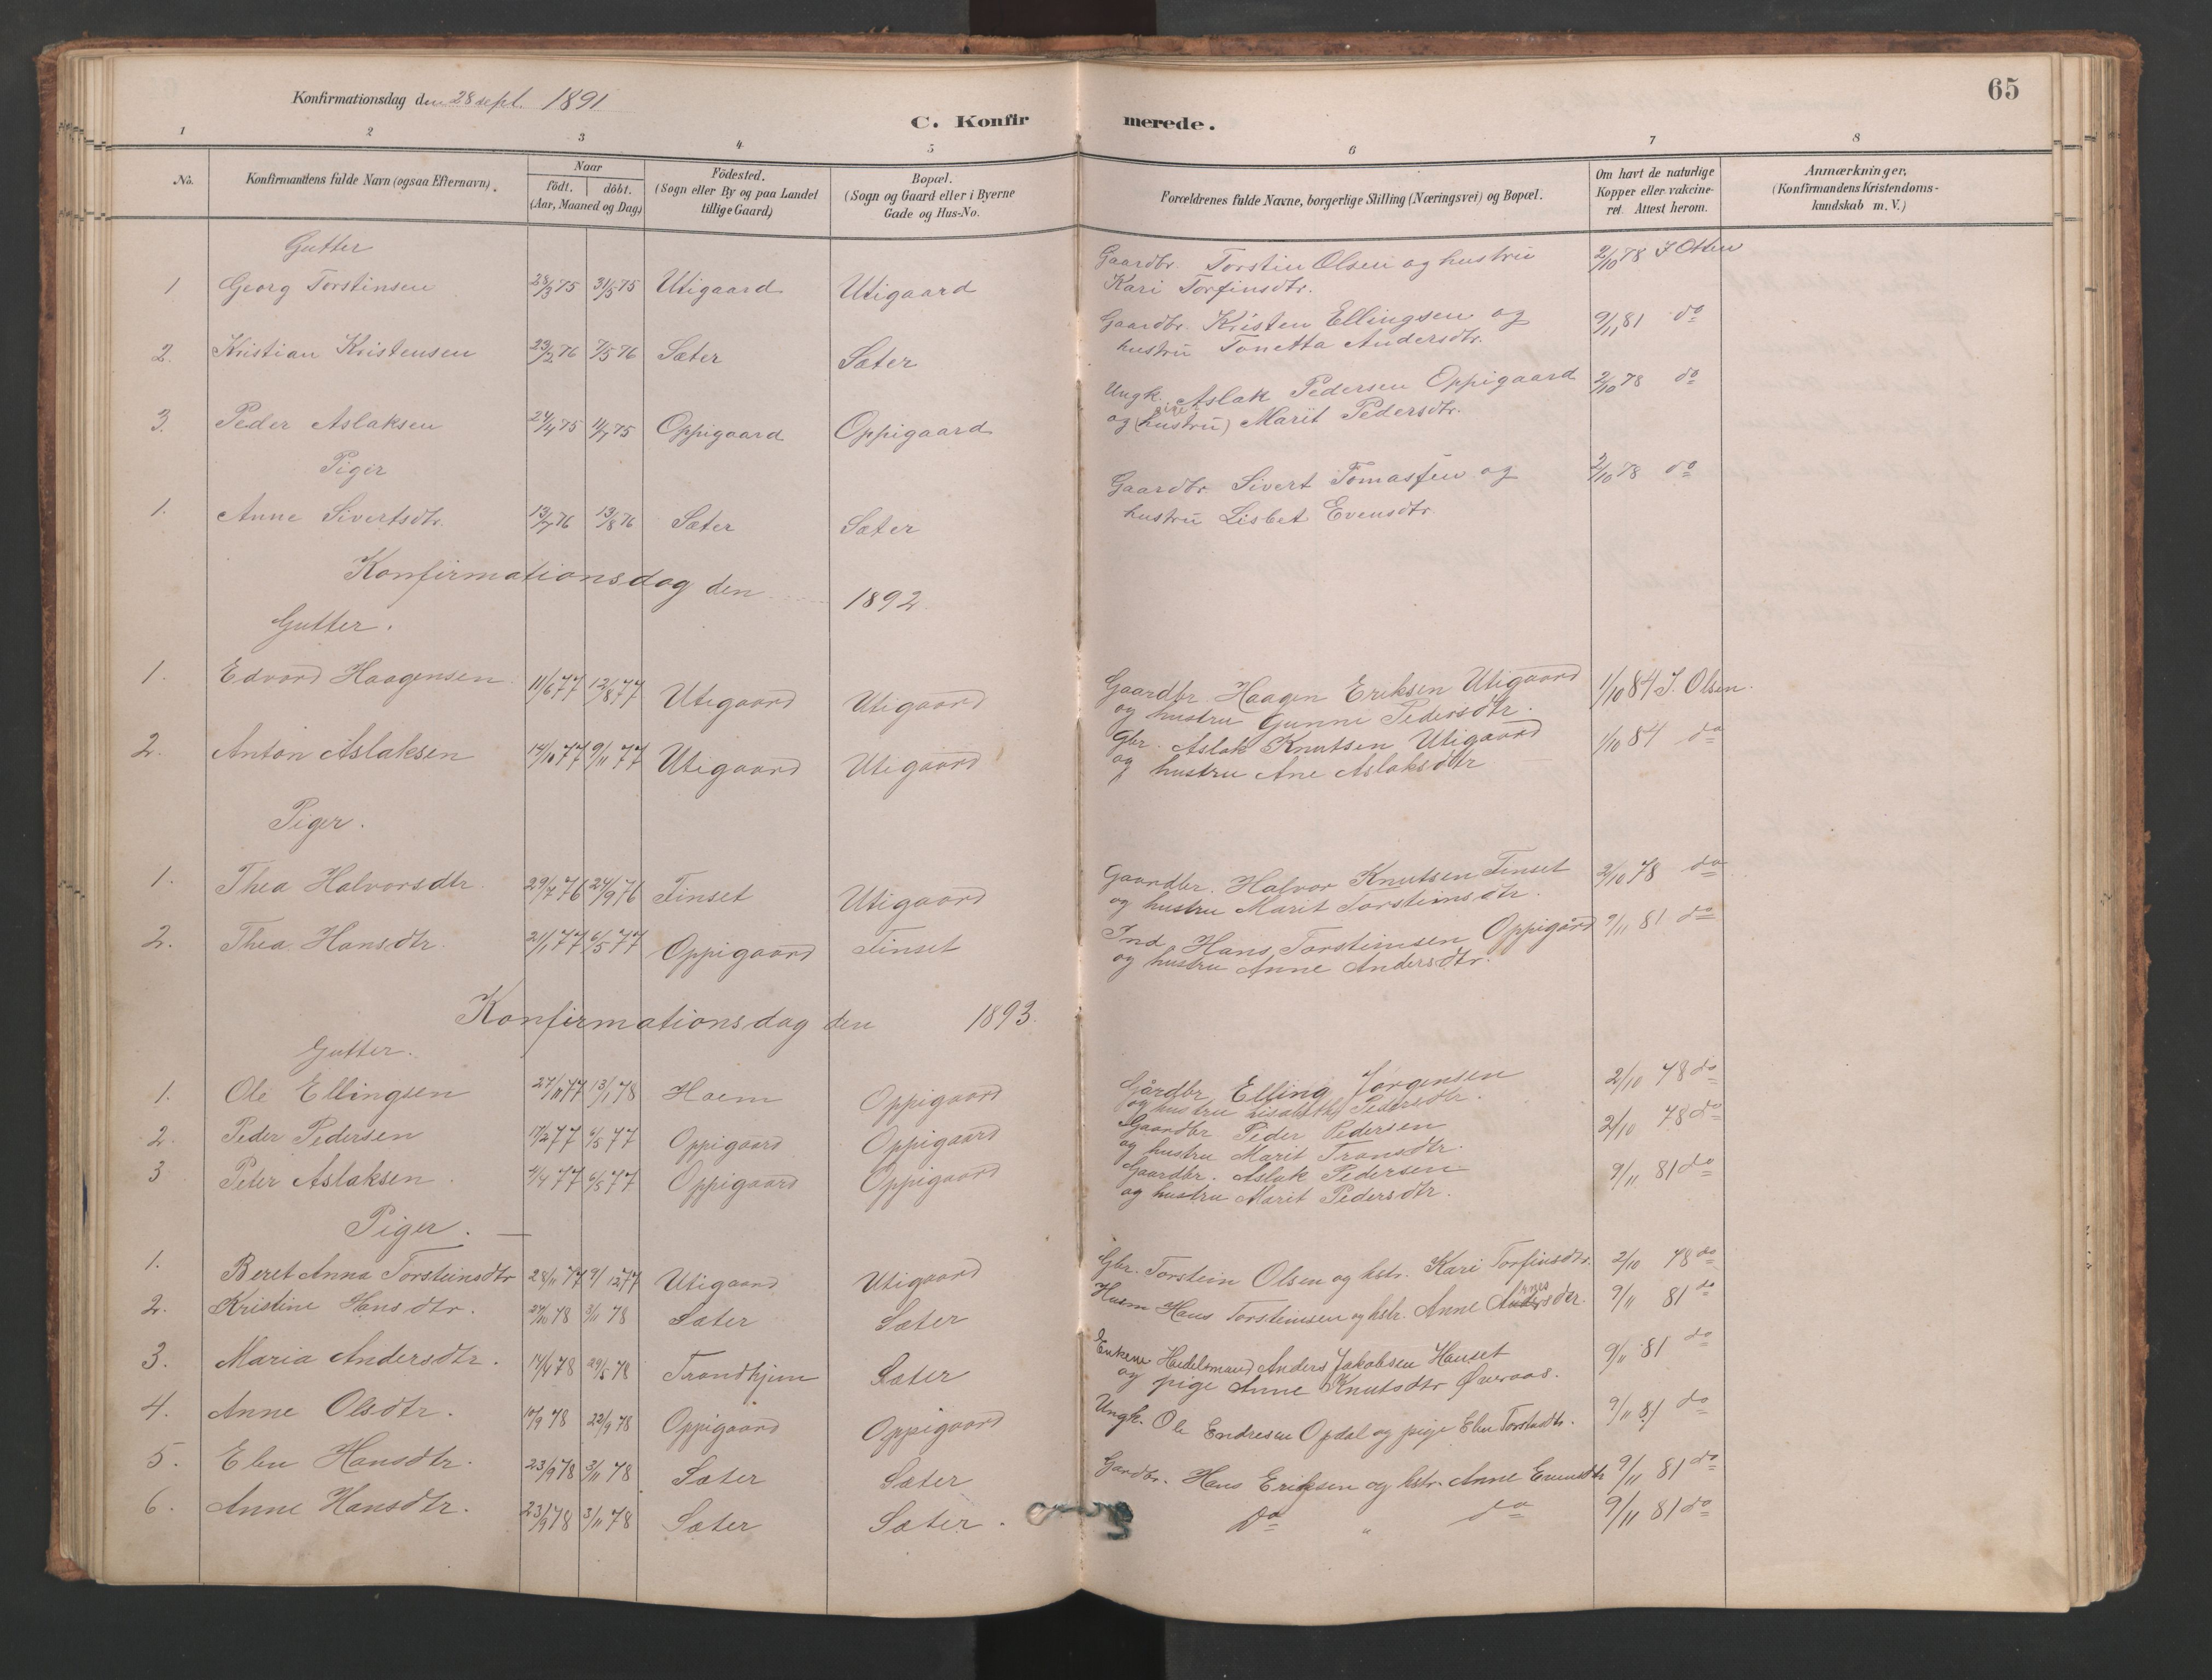 65
Konfirmationsdag den 28 sept. 1891
C. Konfirmerede.
1 2 3 4 5 6 7 8
No. Konfirmandens fulde Navn (ogsaa Efternavn). Naar födt. döbt. (Aar, Maaned og Dag) Födested. (Sogn eller By og paa Landet tillige Gaard) Bopæl. (Sogn og Gaard eller i Byerne Gade og Hus-No. Forældrenes fulde Navne, borgerlige Stilling (Næringsvei) og Bopæl. Om havt de naturlige Kopper eller vakcineret. Attest herom. Anmærkninger, (Konfirmandens Kristendomskundskab m. V.)
Gutter
1 Georg Torstinsen 28/3 75 31/5 75 Utigaard Utigaard Gaardbr. Torstin Olsen og hustru 2/10 78 J Olsen
Kari Torfinsdtr.
2. Kristian Kristensen 23/2 76 7/5 76 Sæter Sæter Gaardbr. Kristen Ellingsen og 9/11 81 do
hustru Tonetta Andersdtr.
3. Peder Aslaksen 24/4 75 11/7 75 Oppigaard Oppigaard Ungk. Aslak Pedersen Oppigaard 2/10 78 do
og (hustru) pige Marit Pedersdtr.
Piger
1. Anne Sivertsdtr. 13/7 76 13/8 76 Sæter Sæter Gaardbr Sivert Tomassen og 2/10 78 do
hustru Lisbet Evensdtr.
Konfirmationsdag den 1892.
Gutter.
1. Edvard Haagensen 11/6 77 12/8 77 Utigaard Utigaard Gaardbr. Haagen Eriksen Utigaard 1/10 84 J. Olsen.
og hustru Gunne Pedersdtr.
2. Anton Aslaksen 14/10 77 9/11 77 Utigaard Utigaard Gbr. Aslak Knutsen Utigaard 1/10 84 do
og hustru Ane Aslaksdtr
Piger.
1. Thea Halvorsdtr. 29/7 76 24/9 76 Tinset Utigaard Gaardbr. Halvor Knutsen Tinset 2/10 78 do
og hustru Marit Torsteinsdtr.
2. Thea Hansdtr. 2/1 77 6/5 77 Oppigaard Tinset Ind. Hans Torsteinsen Oppigård 9/11 81 do
og hustru Anne Andersdtr.
Konfirmationsdag den 1893.
Gutter.
1. Ole Ellingsen 27/11 77 13/1 78 Hoem Oppigaard Gårdbr Elling Jørgensen 2/10 78 do
og hustru Lisabeth Pedersdtr.
2. Peder Pedersen 17/2 77 6/5 77 Oppigaard Oppigaard Gaardbr Peder Pedersen 2/10 78 do
og hustru Marit Transdtr.
3 Peter Aslaksen 4/4 77 6/5 77 Oppigaard Oppigaard Gaardbr. Aslak Pedersen 9/11 81 do
og hustru Marit Pedersdtr.
Piger.
1. Beret Anna Torsteinsdtr 28/11 77 9/12 77 Utigaard Utigaard Gbr. Torstein Olsen og hstr. Kari Torfinsdtr. 2/10 78 do
2. Kristine Hansdtr. 27/10 78 3/11 78 Sæter Sæter Husm Hans Torsteinsen og hstr. Anne Andersdtr. 9/11 81 do
3. Maria Andersdtr. 14/4 78 29/5 78 Trondhjem Sæter Enkem Handelsmand Anders Jakobsen Hauset 9/11 81 do
og pige Anne Knutsdtr Øveraas.
4. Anne Olsdtr. 10/9 78 22/9 78 Oppigaard Oppigaard Ungk. Ole Endresen Opdal og pige Elen Torsteinsdtr. 9/11 81 do
5. Elen Hansdtr. 23/9 78 3/11 78 Sæter Sæter Gardbr. Hans Eriksen og hstr. Anne Evensdtr 9/11 81 do
6. Anne Hansdtr. 23/9 78 3/11 78 Sæter Sæter. do " do 9/11 81 do